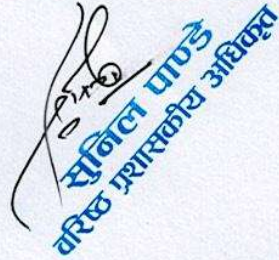 सुनिल पाण्डे
वरिष्ठ प्रशासकीय अधिकृत